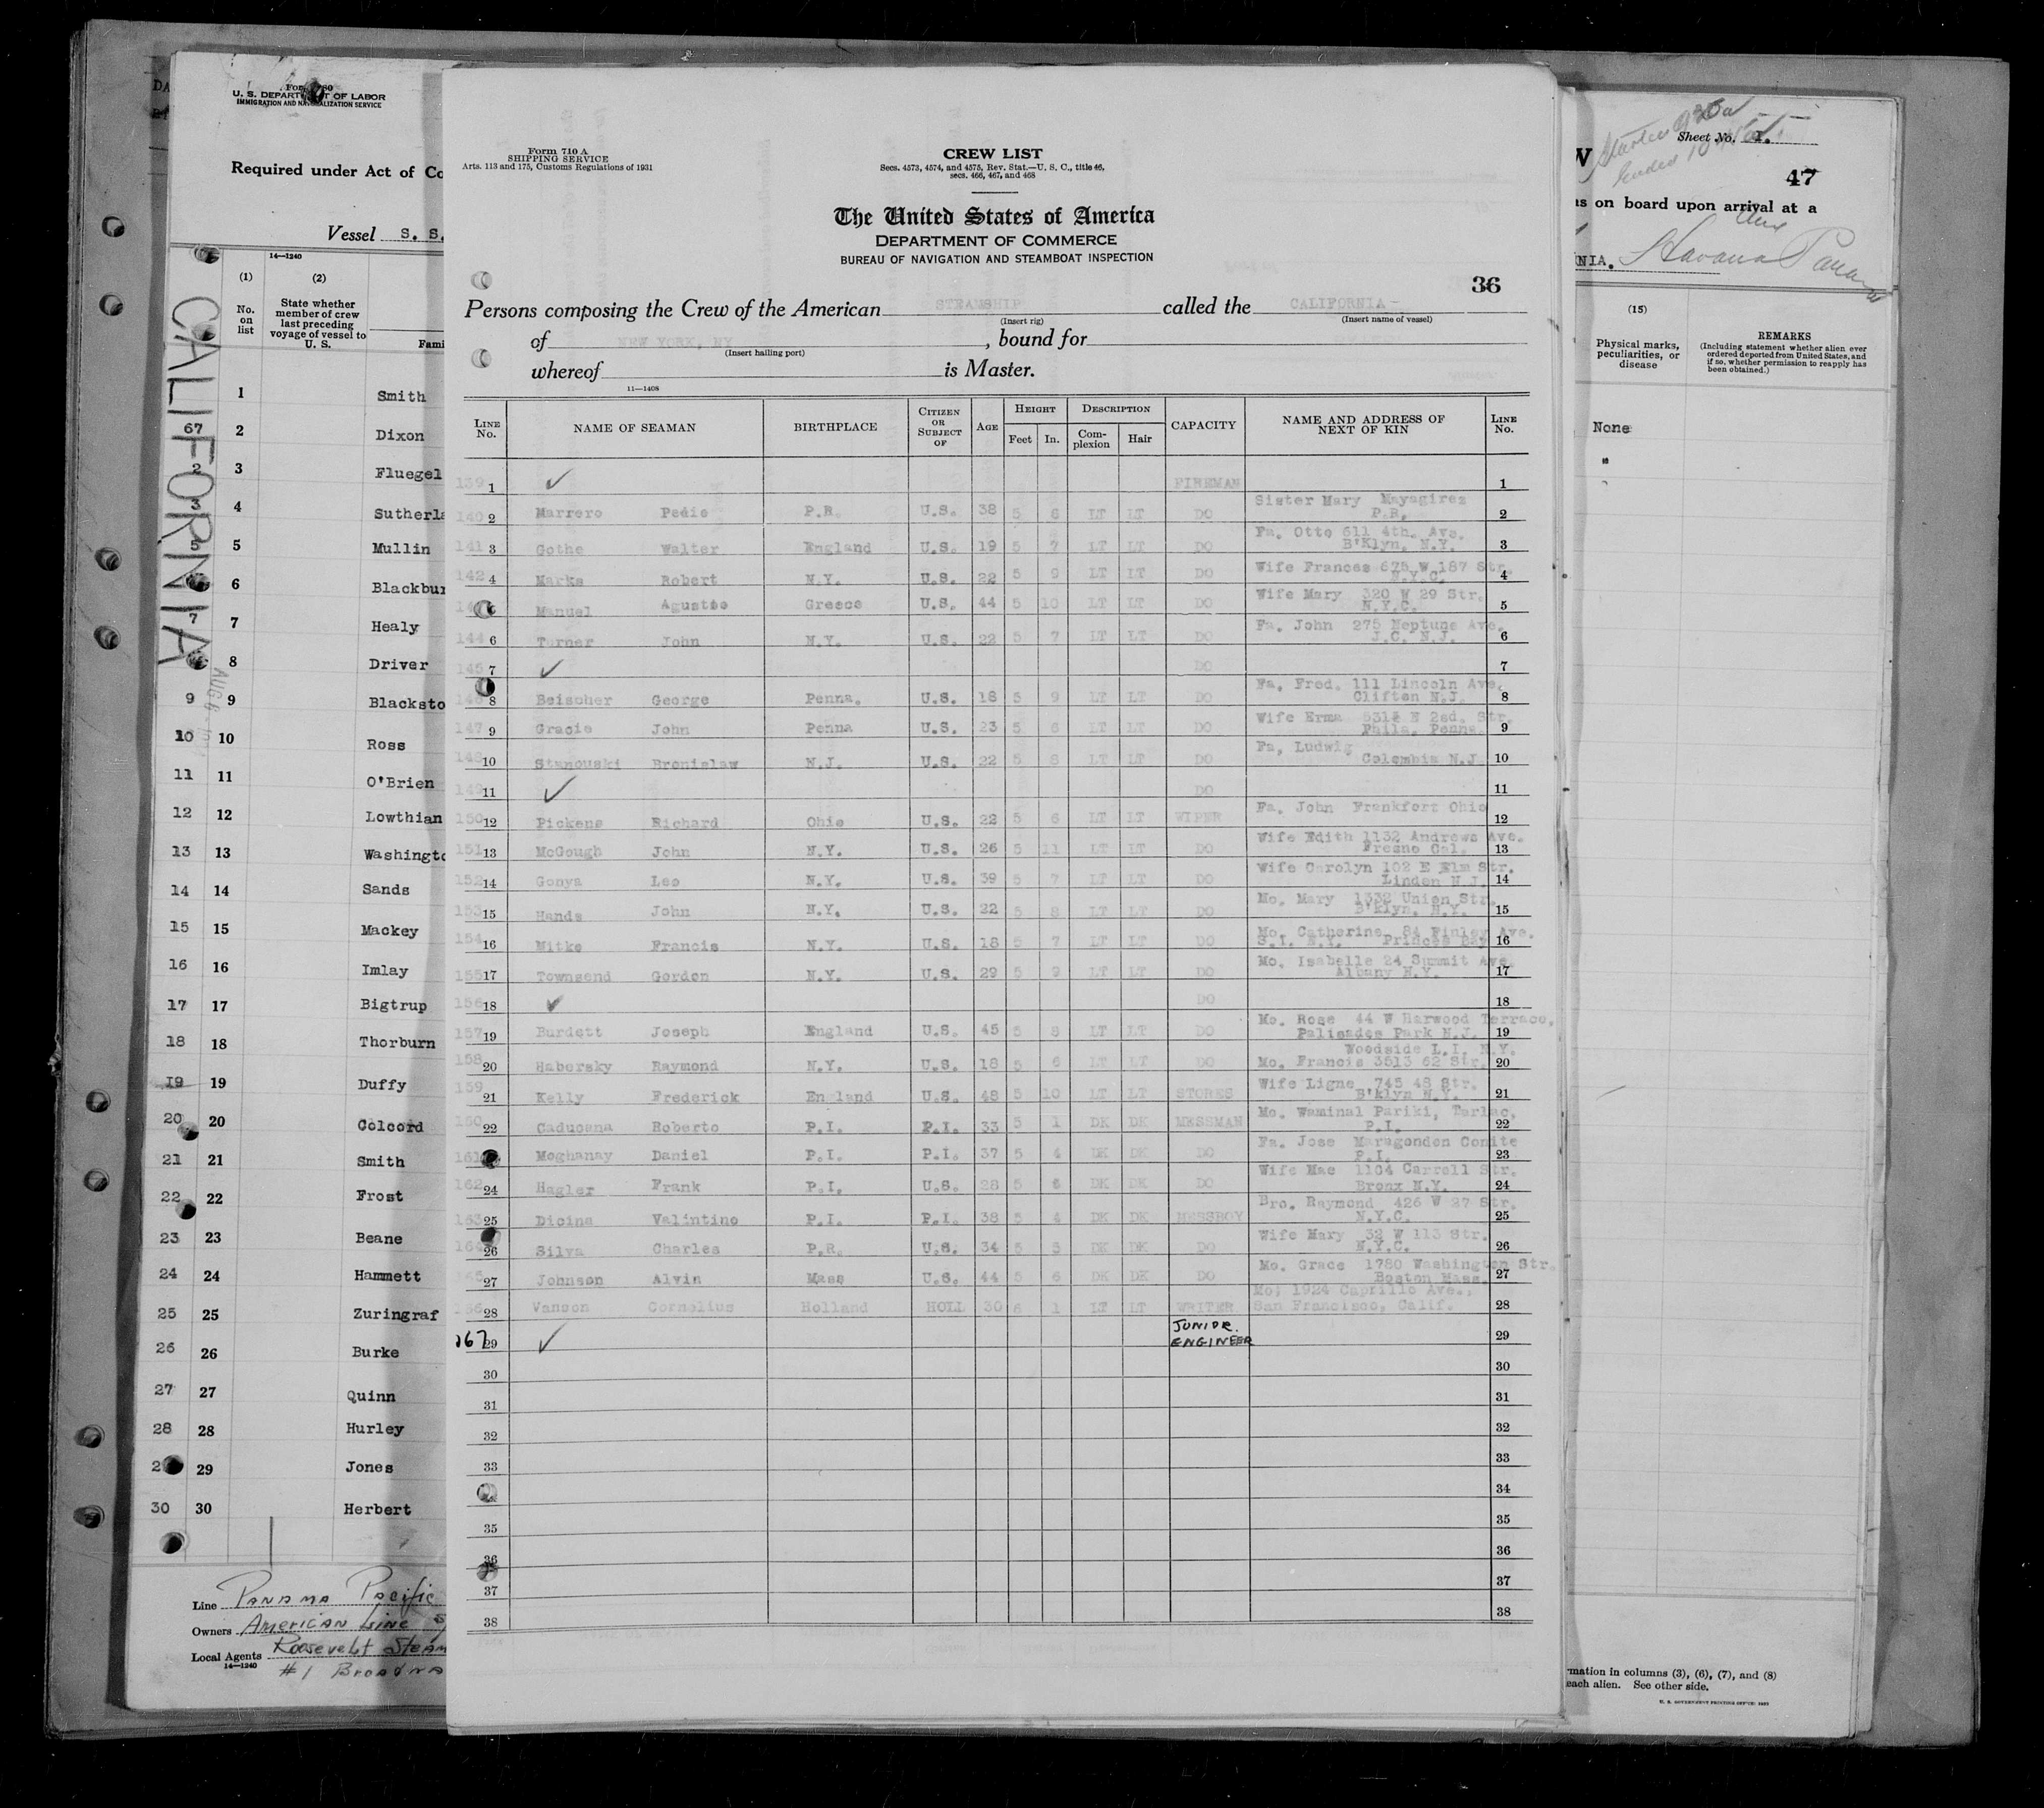 Form 680
U. S. DEPARTMENT OF LABOR
IMMIGRATION AND NATURALIZATION SERVICE
Required under Act of Co
Vessel S. S.
14—1240
(1) (2)
No. on list
State whether member of crew last preceding voyage of vessel to U. S.
Fami
CALIFORNIA
1 Smith
67 2 Dixon
2 3 Fluegel
3 4 Sutherla
5 5 Mullin
6 Blackbur
7 7 Healy
8 Driver
9 9 Blacksto
10 10 Ross
11 11 O'Brien
12 12 Lowthian
13 13 Washingto
14 14 Sands
15 15 Mackey
16 16 Imlay
17 17 Bigtrup
18 18 Thorburn
19 19 Duffy
20 20 Colcord
21 21 Smith
22 22 Frost
23 23 Beane
24 24 Hammett
25 25 Zuringraf
26 26 Burke
27 27 Quinn
28 28 Hurley
2 29 Jones
30 30 Herbert
Line Panama Pacific
Owners American Line S
Local Agents Roosevelt Steam
14—1240
#1 Broadwa
Form 710 A
SHIPPING SERVICE
Arts. 113 and 175, Customs Regulations of 1931
CREW LIST
Secs. 4573, 4574, and 4575, Rev. Stat.—U. S. C., title 46,
secs. 466, 467, and 468
The United States of America
DEPARTMENT OF COMMERCE
BUREAU OF NAVIGATION AND STEAMBOAT INSPECTION
36
Persons composing the Crew of the American STEAMSHIP called the CALIFORNIA-
(Insert rig) (Insert name of vessel)
of NEW YORK, NY, bound for
(Insert hailing port)
whereof is Master.
11—1408
LINE No. NAME OF SEAMAN BIRTHPLACE CITIZEN OR SUBJECT OF AGE HEIGHT Feet In. DESCRIPTION Complexion Hair CAPACITY NAME AND ADDRESS OF NEXT OF KIN LINE No.
139 1 ✓ FIREMAN 1
140 2 Marrero Pedie P.R. U.S. 38 5 6 LT LT DO Sister Mary Mayagirez P.R. 2
141 3 Gothe Walter England U.S. 19 5 7 LT LT DO Fa. Otto 611 4th. Ave. B'Klyn. N.Y. 3
142 4 Marks Robert N.Y. U.S. 22 5 9 LT LT DO Wife Frances 675 W 187 Str. N.Y.C. 4
Manuel Agustoe Greece U.S. 44 5 10 LT LT DO Wife Mary 320 W 29 Str. N.Y.C. 5
144 6 Turner John N.Y. U.S. 22 5 7 LT LT DO Fa. John 275 Neptune Ave. J.C. N.J. 6
145 7 ✓ DO 7
146 8 Beischer George Penna. U.S. 18 5 9 LT LT DO Fa. Fred. 111 Lincoln Ave. Clifton N.J. 8
147 9 Gracie John Penna U.S. 23 5 6 LT LT DO Wife Erma N 2nd. Str. Phila. Penna 9
148 10 Stanouski Bronislaw N.J. U.S. 22 5 8 LT LT DO Fa, Ludwig Colombia N.J 10
149 11 ✓ DO 11
150 12 Pickens Richard Ohio U.S. 22 5 6 LT LT WIPER Fa. John Frankfort Ohio 12
151 13 McGough John N.Y. U.S. 26 5 11 LT LT DO Wife Edith 1132 Andrews Ave. Fresno Cal. 13
152 14 Gonya Leo N.Y. U.S. 39 5 7 LT LT DO Wife Carolyn 102 E Elm Str. Linden N.J. 14
153 15 Hands John N.Y. U.S. 22 5 8 LT LT DO Mo. Mary 1332 Union Str. B'klyn. N.Y. 15
154 16 Mitke Francis N.Y. U.S. 18 5 7 LT LT DO Mo. Catherine 84 Finley Ave. S.I. N.Y. Princes Bay 16
155 17 Townsend Gordon N.Y. U.S. 29 5 9 LT LT DO Mo. Isabelle 24 Summit Ave. Albany N.Y. 17
156 18 ✓ DO 18
157 19 Burdett Joseph England U.S. 45 5 8 LT LT DO Mo. Rose 44 W Harwood Terrace, Palisades Park N.J. 19
158 20 Habersky Raymond N.Y. U.S. 18 5 6 LT LT DO Woodside L.I. N.Y. Mo. Francis 3513 62 Str. 20
159 21 Kelly Frederick England U.S. 48 5 10 LT LT STORES Wife Ligne 745 48 Str. B'klyn N.Y. 21
160 22 Caducana Roberto P.I. P.I. 33 5 1 DK DK MESSMAN Mo. Waminal Pariki, Terlac, P.I. 22
161 Moghanay Daniel P.I. P.I. 37 5 4 DK DK DO Fa. Jose Maragondon Conite P.I. 23
162 24 Hagler Frank P.I. U.S. 28 5 6 DK DK DO Wife Mae 1104 Carroll Str. Bronx N.Y. 24
163 25 Dicina Valintino P.I. P.I. 38 5 4 DK DK MESSBOY Bro. Raymond 426 W 27 Str. N.Y.C. 25
164 26 Silva Charles P.R. U.S. 34 5 5 DK DK DO Wife Mary 32 W 113 Str. N.Y.C. 26
165 27 Johnson Alvin Mass U.S. 44 5 6 DK DK DO Mo. Grace 1780 Washington Str. Boston Mass. 27
166 28 Vanson Cornelius Holland HOLL 30 6 1 LT LT WRITER Mo; 1924 Caprillo Ave., San Francisco, Calif. 28
167 29 ✓ JUNIOR. ENGINEER 29
30 30
31 31
32 32
33 33
34
35 35
36 36
37 37
38 38
Sheet No. 1.
47
ns on board upon arrival at a
NIA. Havana
(15)
Physical marks, peculiarities, or disease
REMARKS
(Including statement whether alien ever ordered deported from United States, and if so, whether permission to reapply has been obtained.)
None
"
mation in columns (3), (6), (7), and (8)
each alien. See other side.
U. S. GOVERNMENT PRINTING OFFICE